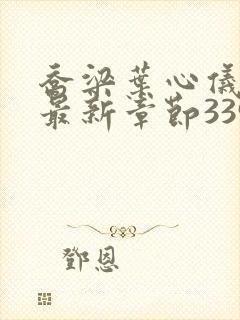 乔梁葉心儀
最新章節339
鄧恩